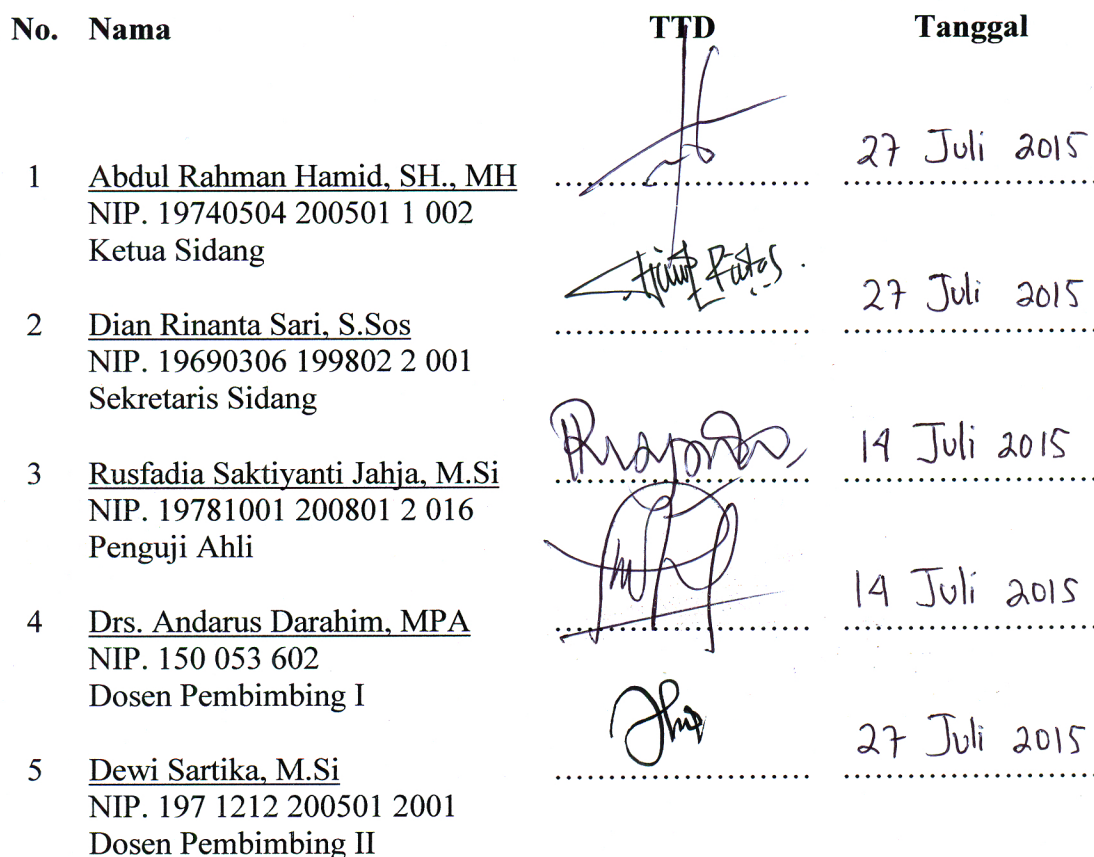 No. Nama TTD Tanggal
27 Juli 2015
1 Abdul Rahman Hamid, SH., MH
NIP. 19740504 200501 1 002
Ketua Sidang
27 Juli 2015
2 Dian Rinanta Sari, S.Sos
NIP. 19690306 199802 2 001
Sekretaris Sidang
14 Juli 2015
3 Rusfadia Saktiyanti Jahja, M.Si
NIP. 19781001 200801 2 016
Penguji Ahli
14 Juli 2015
4 Drs. Andarus Darahim, MPA
NIP. 150 053 602
Dosen Pembimbing I
27 Juli 2015
5 Dewi Sartika, M.Si
NIP. 197 1212 200501 2001
Dosen Pembimbing II